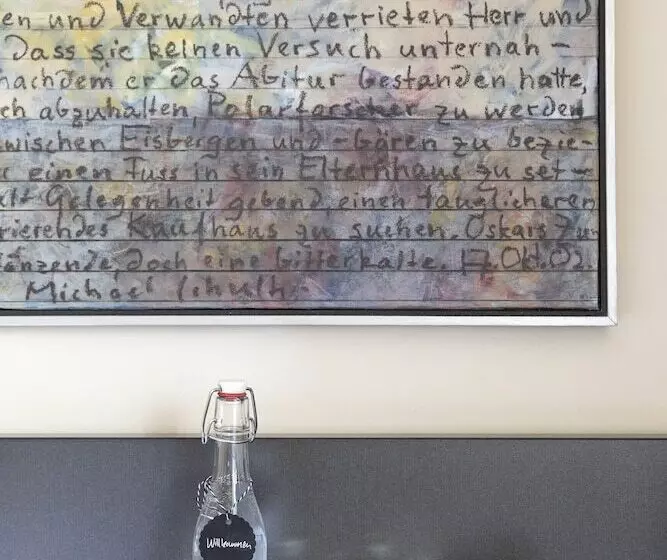 en und Verwandten verrieten Herr und
Dass sie keinen Versuch unternah-
nachdem er das Abitur bestanden hatte,
ch abzuhalten, Polarforscher zu werden
wischen Eisbergen und -Bären zu bezie-
r einen Fuss in sein Elternhaus zu set-
Gelegenheit gebend einen tauglicheren
rierendes Kaufhaus zu suchen. Oskars Zu
änzende, doch eine bitterkalte. 17. Okt. 02.
Michael
Willkommen